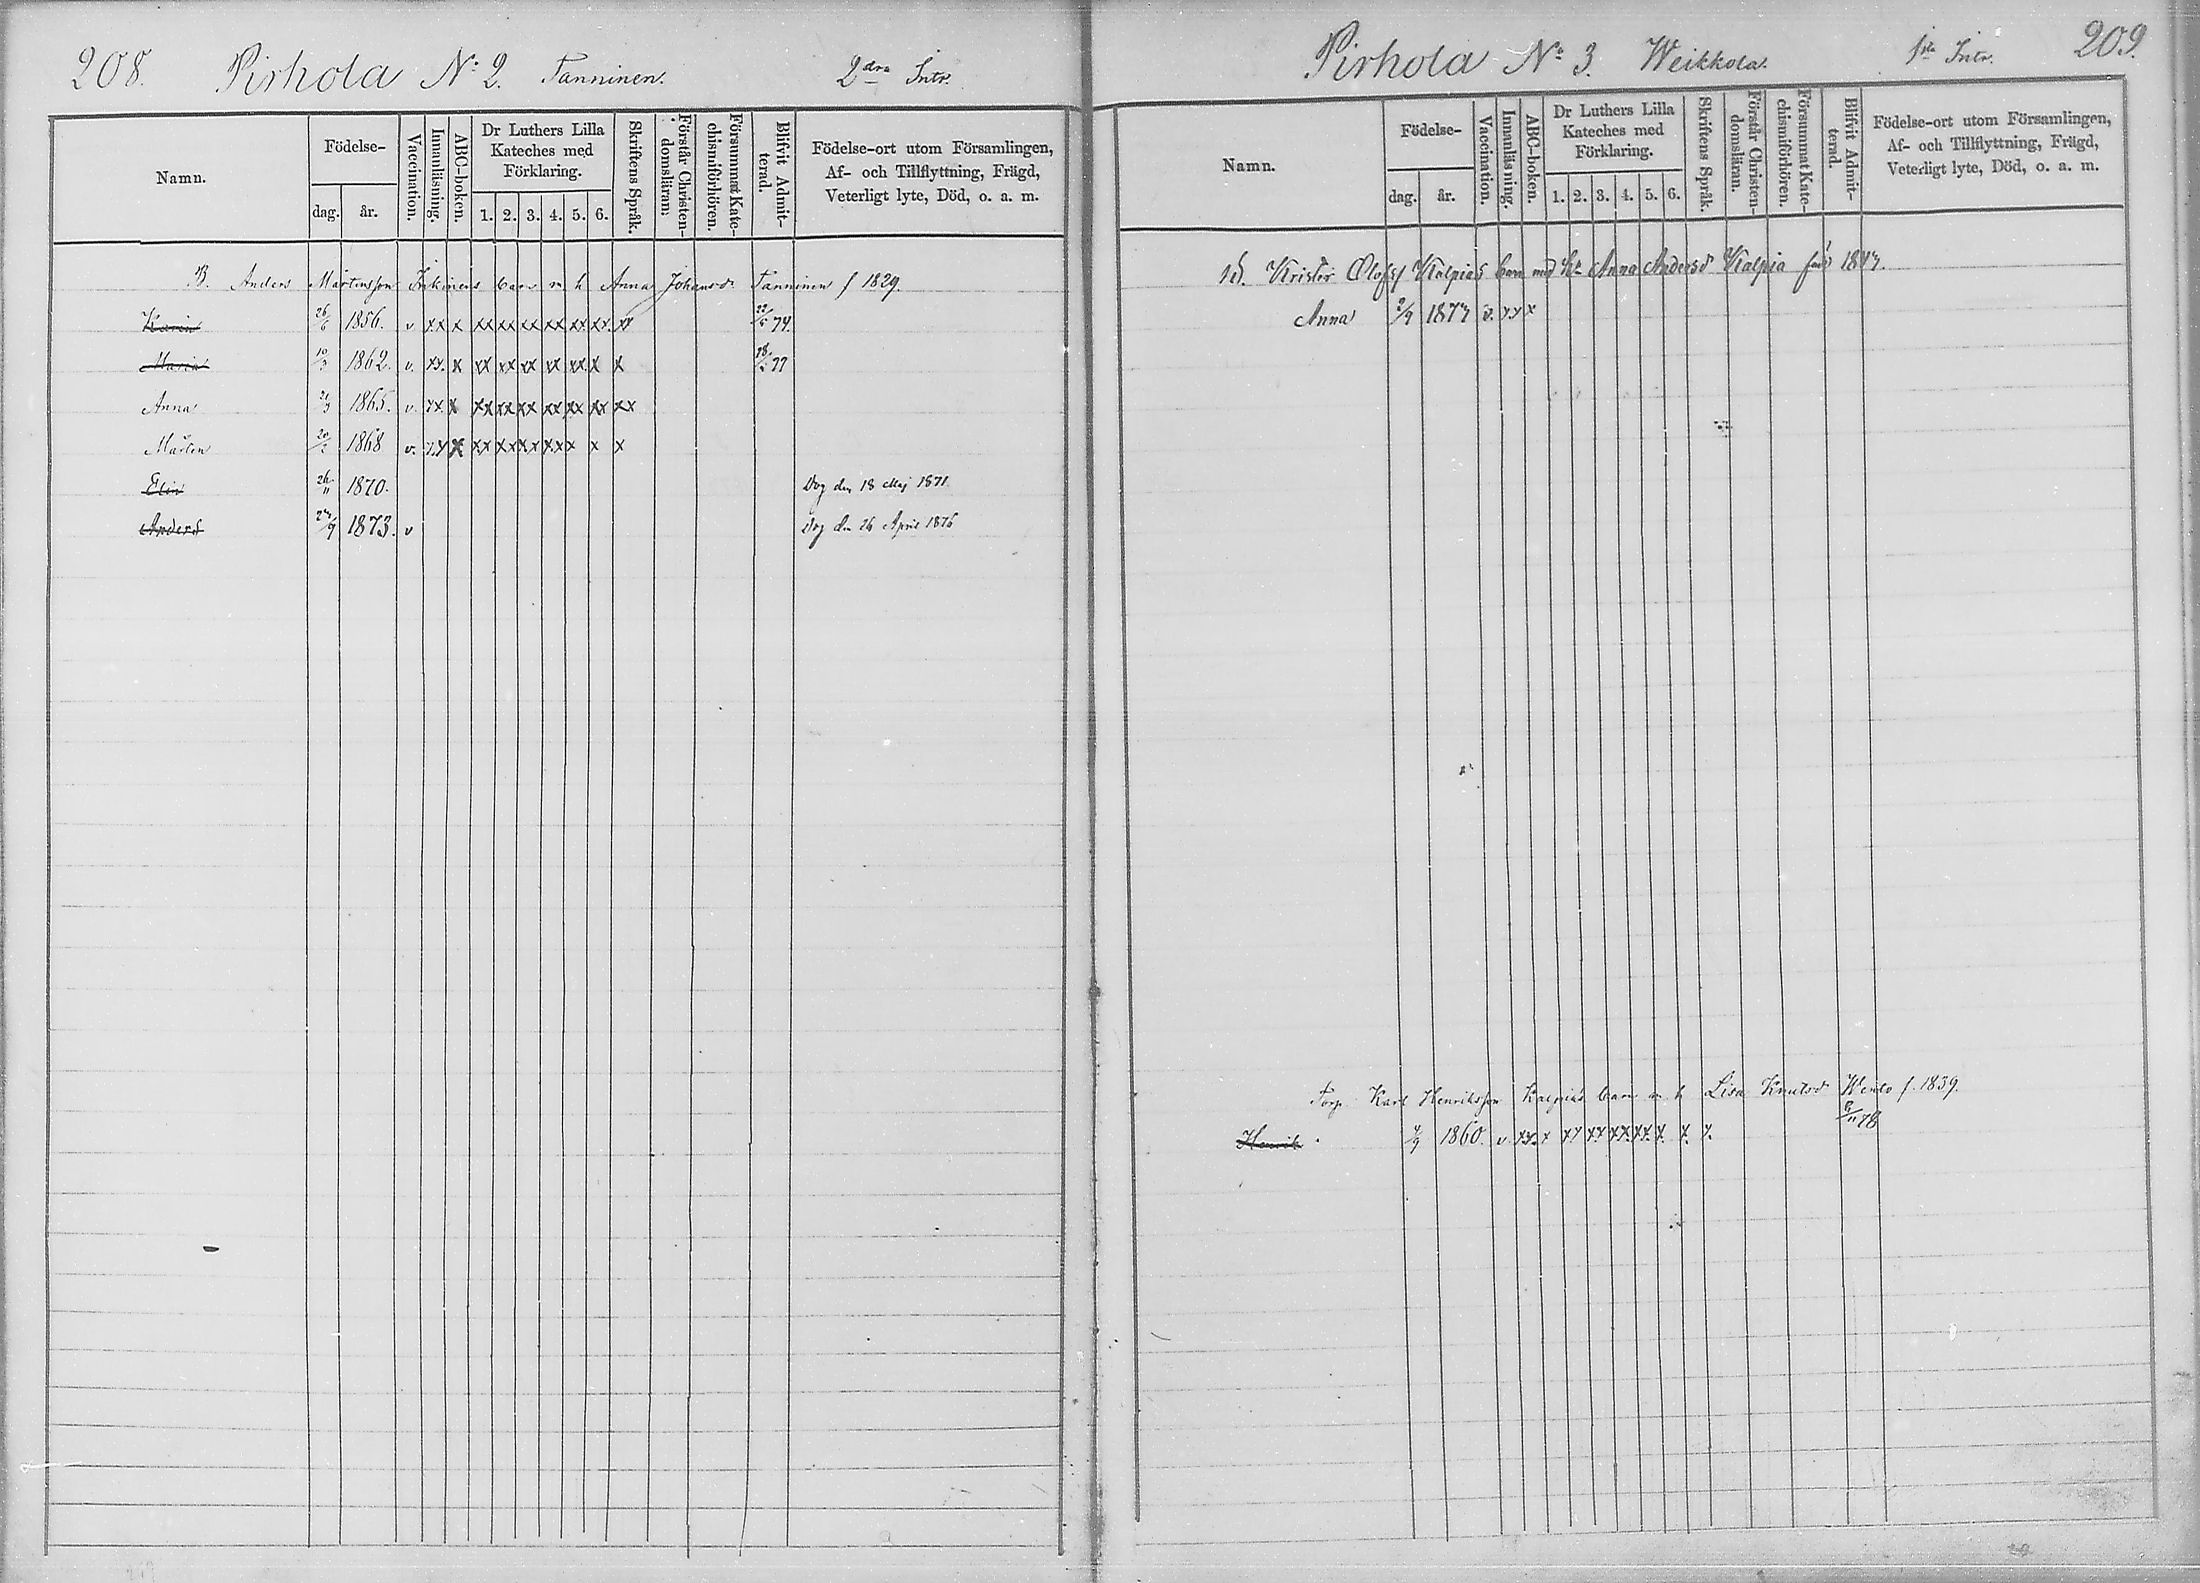 208. Pirhola No 2. Tanninen. 2dra Intr.
Namn.
Födelse-
dag. år.
Vaccination.
Innanläsning.
ABC-boken.
Dr Luthers Lilla
Kateches med
Förklaring.
1. 2. 3. 4. 5. 6.
Skriftens Språk.
Förstår Christen-
domsläran.
Försummat Kate-
chismiförhören.
Blifvit Admit-
terad.
Födelse-ort utom Församlingen,
Af- och Tillflyttning, Frägd,
Veterligt lyte, Död, o. a. m.
B. Anders Mårtensson Inkinens barn m h Anna Johansd Tanninen f 1829.
Karin 26/6 1856. v xx x xx xx xx xx xx xx xx 74.
Maria 10/3 1862. v. xx. x xx xx xx xx xx x x 77
Anna 1865. v. xx x xx xx xx xx xx xx xx
Mårten 1868 v. xx x xx xx xx xx x x x
Elin 26/11 1870. Dog den 18 Maj 1871.
Anders 1873. v Dog den 26 April 1876
Pirhola No 3. Weikkola. 1sta Intr. 209.
Namn.
Födelse-
dag. år.
Vaccination.
Innanläsning.
ABC-boken.
Dr Luthers Lilla
Kateches med
Förklaring.
1. 2. 3. 4. 5. 6.
Skriftens Språk.
Förstår Christen-
domsläran.
Försummat Kate-
chismiförhören.
Blifvit Admit-
terad.
Födelse-ort utom Församlingen,
Af- och Tillflyttning, Frägd,
Veterligt lyte, Död, o. a. m.
Krister Olofss Kalpias barn med h. Anna Andersd Kalpia född 1847.
Anna 2/9 1877 v. xx x
Torp. Karl Henriksson Kalpias barn m h Lisa Knutsd Wento f. 1839.
8/11 78
Henrik 1860. v xx. x xx xx xx xx x x. x.